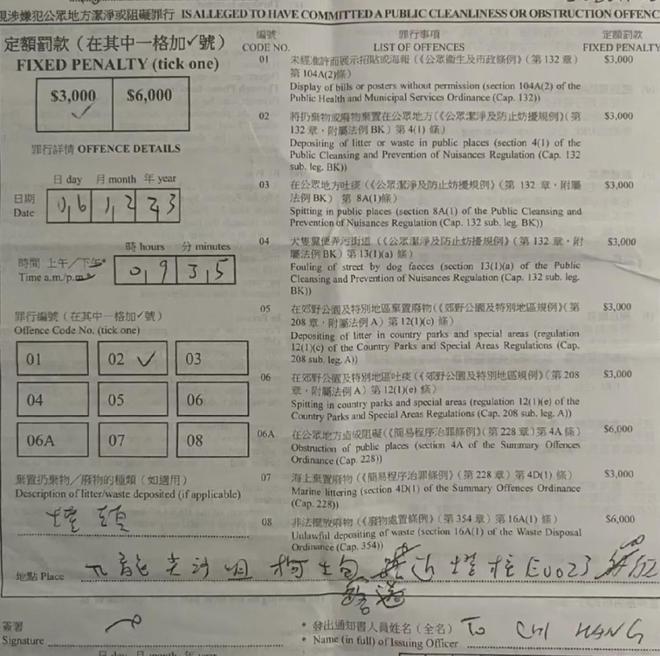 現涉嫌犯公眾地方潔淨或阻礙罪行 IS ALLEGED TO HAVE COMMITTED A PUBLIC CLEANLINESS OR OBSTRUCTION OFFENC
定額罰款（在其中一格加✓號）
FIXED PENALTY (tick one)
$3,000 $6,000
✓
罪行詳情 OFFENCE DETAILS
日 day 月 month 年 year
日期
Date
0 6 1 2 2 3
時 hours 分 minutes
時間 上午／下午*
Time a.m./p.m.*
0 9 3 5
罪行編號（在其中一格加✓號）
Offence Code No. (tick one)
01 02 ✓ 03
04 05 06
06A 07 08
棄置扔棄物／廢物的種類（如適用）
Description of litter/waste deposited (if applicable)
煙頭
編號 罪行事項 定額罰款
CODE NO. LIST OF OFFENCES FIXED PENALTY
01 未經准許而展示招貼或海報（《公眾衞生及市政條例》（第 132 章） $3,000
第 104A(2)條）
Display of bills or posters without permission (section 104A(2) of the
Public Health and Municipal Services Ordinance (Cap. 132))
02 將扔棄物或廢物棄置在公眾地方（《公眾潔淨及防止妨擾規例》（第 $3,000
132 章，附屬法例 BK）第 4(1) 條）
Depositing of litter or waste in public places (section 4(1) of the
Public Cleansing and Prevention of Nuisances Regulation (Cap. 132
sub. leg. BK))
03 在公眾地方吐痰（《公眾潔淨及防止妨擾規例》（第 132 章，附屬 $3,000
法例 BK）第 8A(1)條）
Spitting in public places (section 8A(1) of the Public Cleansing and
Prevention of Nuisances Regulation (Cap. 132 sub. leg. BK))
04 犬隻糞便弄污街道（《公眾潔淨及防止妨擾規例》（第 132 章，附 $3,000
屬法例 BK）第 13(1)(a) 條）
Fouling of street by dog faeces (section 13(1)(a) of the Public
Cleansing and Prevention of Nuisances Regulation (Cap. 132 sub. leg.
BK))
05 在郊野公園及特別地區棄置廢物（《郊野公園及特別地區規例》（第 $3,000
208 章，附屬法例 A）第 12(1)(c) 條）
Depositing of litter in country parks and special areas (regulation
12(1)(c) of the Country Parks and Special Areas Regulations (Cap.
208 sub. leg. A))
06 在郊野公園及特別地區吐痰（《郊野公園及特別地區規例》（第 208 $3,000
章，附屬法例 A）第 12(1)(e) 條）
Spitting in country parks and special areas (regulation 12(1)(e) of the
Country Parks and Special Areas Regulations (Cap. 208 sub. leg. A))
06A 在公眾地方造成阻礙（《簡易程序治罪條例》（第 228 章）第 4A 條） $6,000
Obstruction of public places (section 4A of the Summary Offences
Ordinance (Cap. 228))
07 海上棄置廢物（《簡易程序治罪條例》（第 228 章）第 4D(1) 條） $3,000
Marine littering (section 4D(1) of the Summary Offences Ordinance
(Cap. 228))
08 非法擺放廢物（《廢物處置條例》（第 354 章）第 16A(1) 條） $6,000
Unlawful depositing of waste (section 16A(1) of the Waste Disposal
Ordinance (Cap. 354))
地點 Place 九龍尖沙咀 近燈柱 E0023
簽署
Signature
* 發出通知書人員姓名（全名） TO CHI HANG
* Name (in full) of Issuing Officer
日 day 月 month 年 year